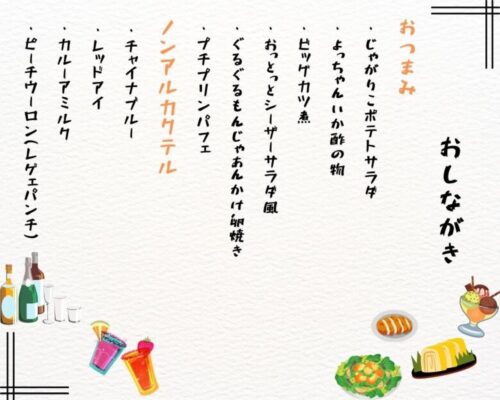 おしながき
おつまみ
・じゃがりこポテトサラダ
・よっちゃんいか酢の物
・ビッグカツ煮
・おっとっとシーザーサラダ風
・ぐるぐるもんじゃあんかけ卵焼き
・プチプリンパフェ
ノンアルカクテル
・チャイナブルー
・レッドアイ
・カルーアミルク
・ピーチウーロン(レゲェパンチ)